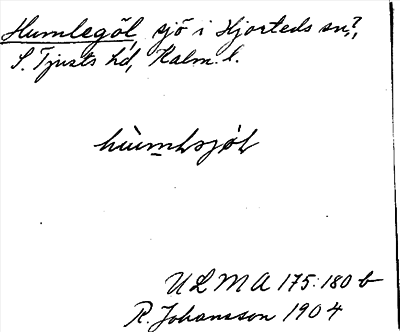 Humlegöl, sjö i Hjorteds sn?,
S. Tjusts hd, Kalm. l.
hùmlsjöl
ULMA 175:180 b
R. Johansson 1904